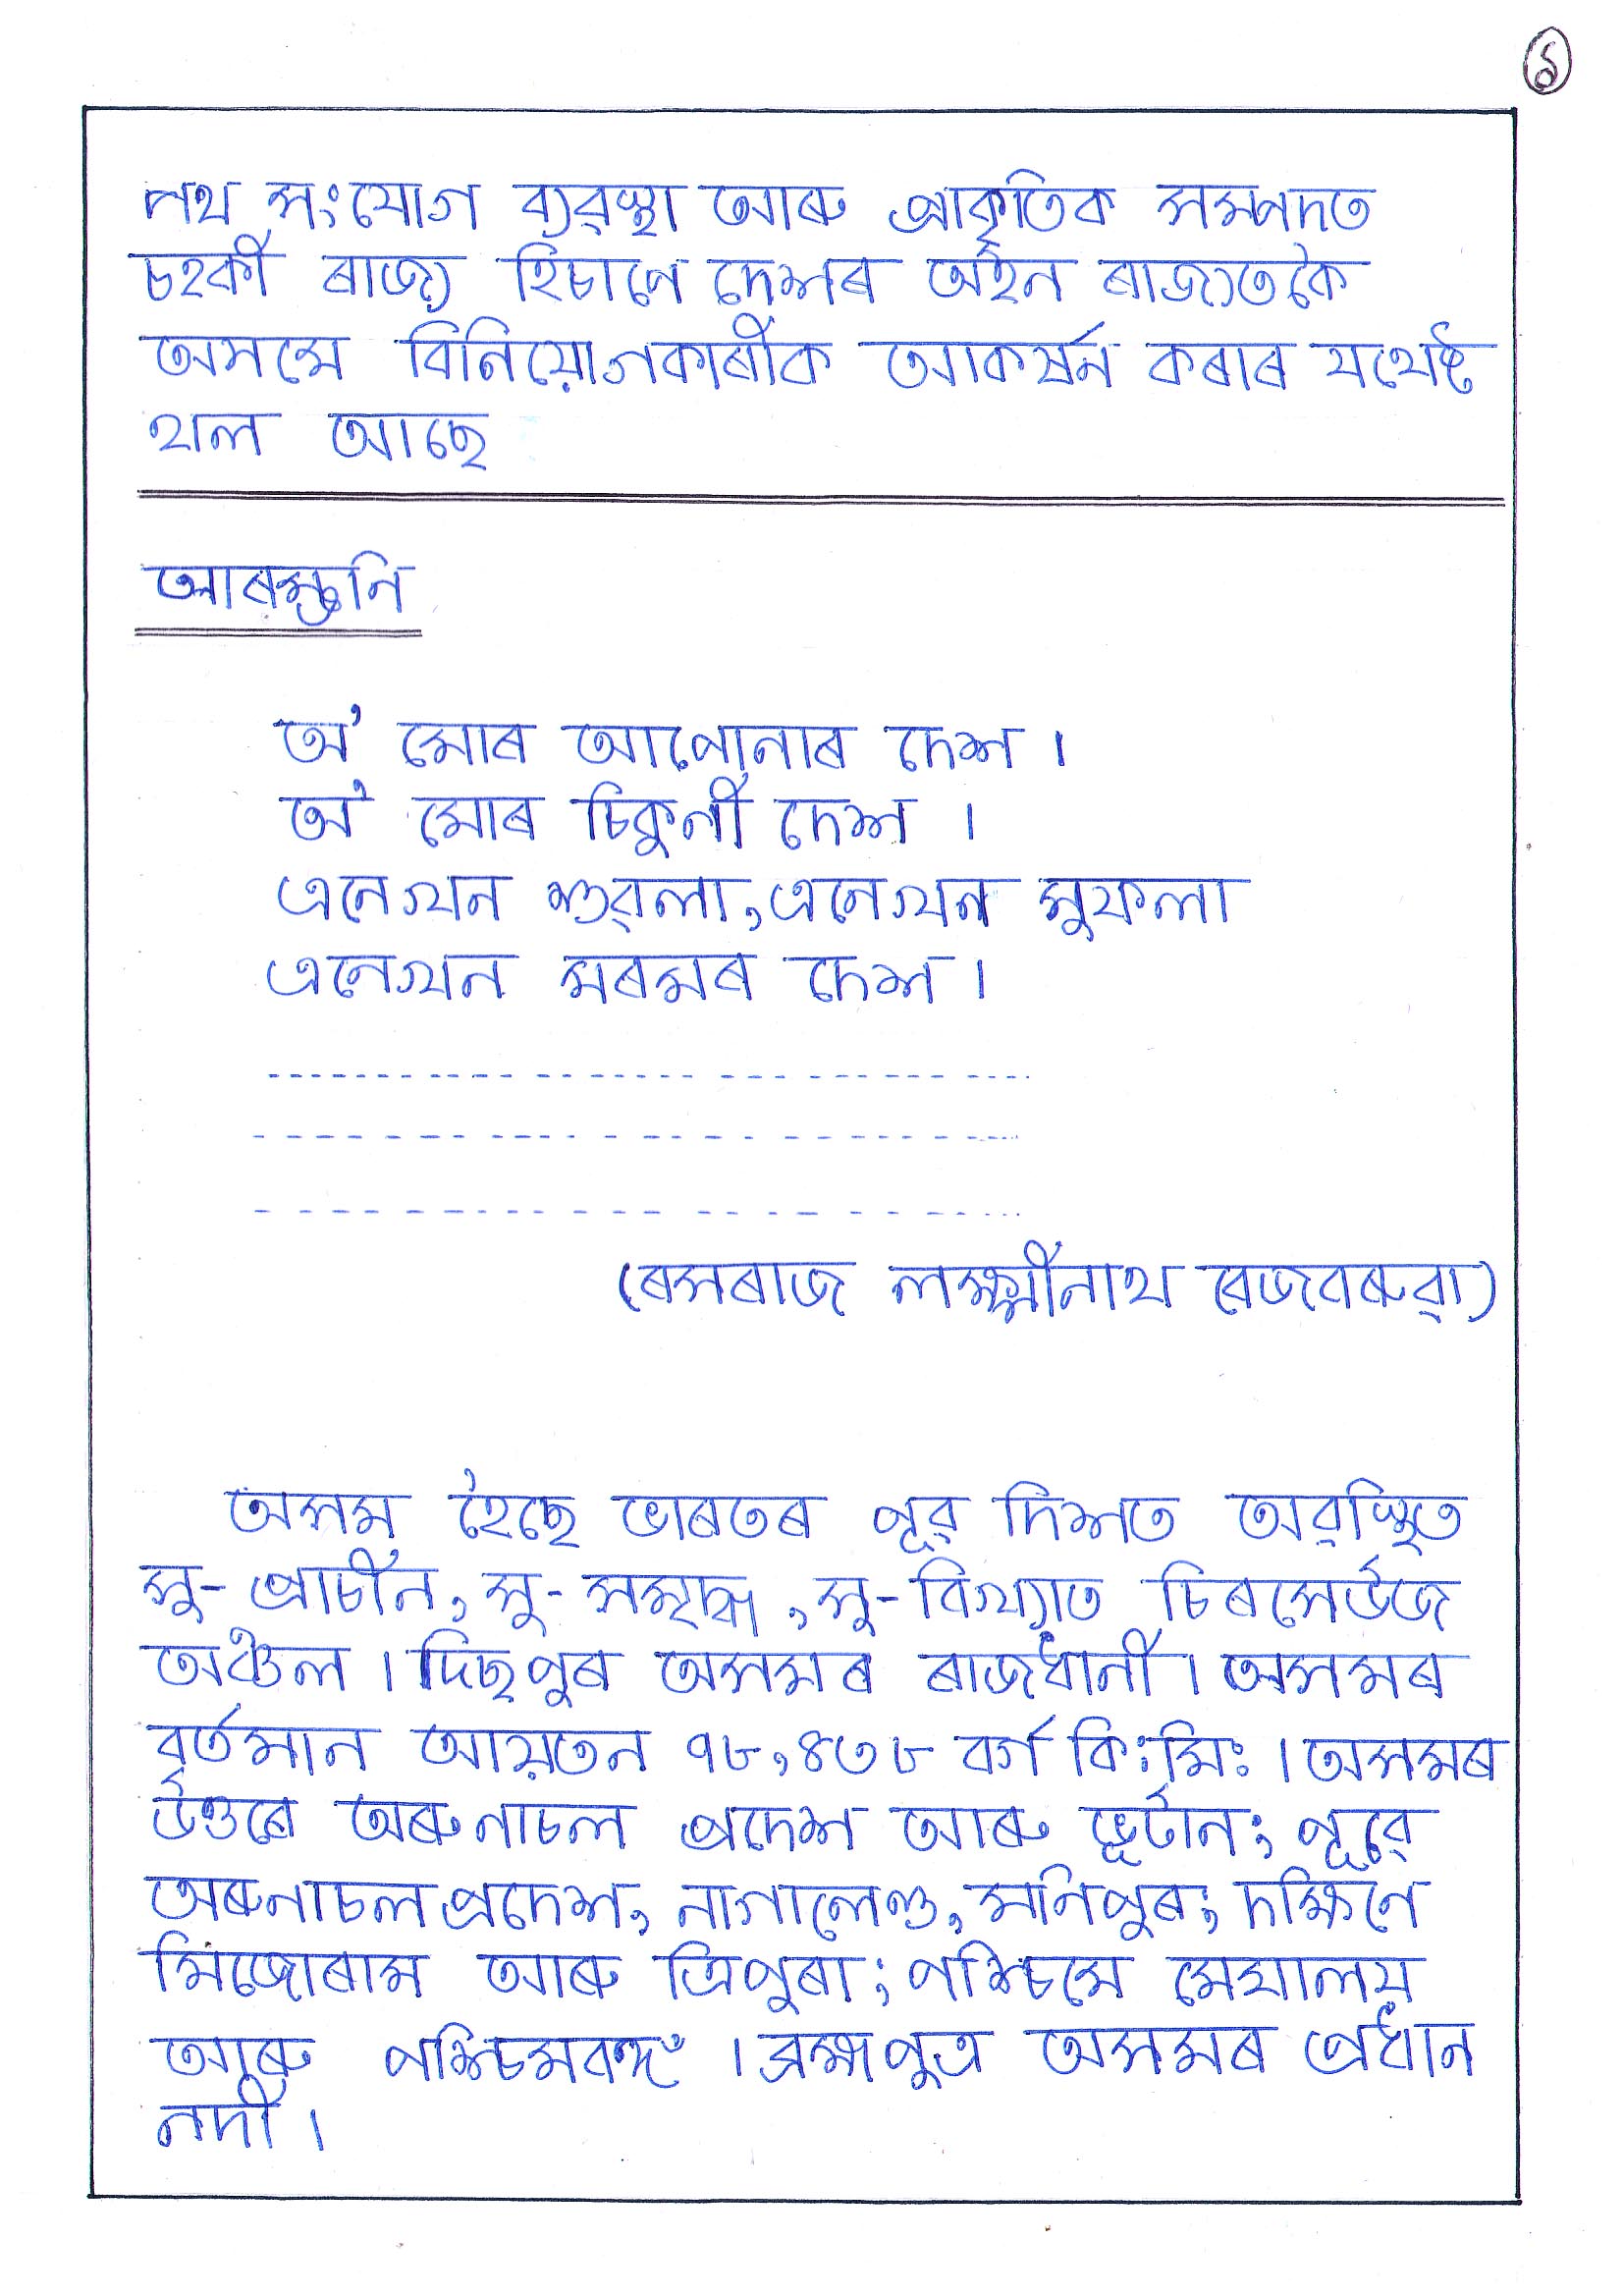 ১
পথ সংযোগ ব্যৱস্থা আৰু প্ৰাকৃতিক সম্পদত
চহকী ৰাজ্য হিচাপে দেশৰ অইন ৰাজ্যতকৈ
অসমে বিনিয়োগকাৰীক আকৰ্ষন কৰাৰ যথেষ্ট
থল আছে
আৰম্ভনি
অ' মোৰ আপোনাৰ দেশ ।
অ' মোৰ চিকুনী দেশ ।
এনেখন শুৱলা, এনেখন সুফলা
এনেখন মৰমৰ দেশ ।
(ৰসৰাজ লক্ষ্মীনাথ বেজবৰুৱা)
অসম হৈছে ভাৰতৰ পূৱ দিশত অৱস্থিত
সু-প্ৰাচীন, সু-সমৃদ্ধ, সু-বিখ্যাত চিৰসেউজ
অঞ্চল । দিছপুৰ অসমৰ ৰাজধানী । অসমৰ
বৰ্তমান আয়তন ৭৮,৪৩৮ বৰ্গ কি:মি: । অসমৰ
উত্তৰে অৰুনাচল প্ৰদেশ আৰু ভূটান; পূৱে
অৰুনাচল প্ৰদেশ, নাগালেণ্ড, মনিপুৰ; দক্ষিনে
মিজোৰাম আৰু ত্ৰিপুৰা; পশ্চিমে মেঘালয়
আৰু পশ্চিমবঙ্গ । ব্ৰহ্মপুত্ৰ অসমৰ প্ৰধান
নদী ।